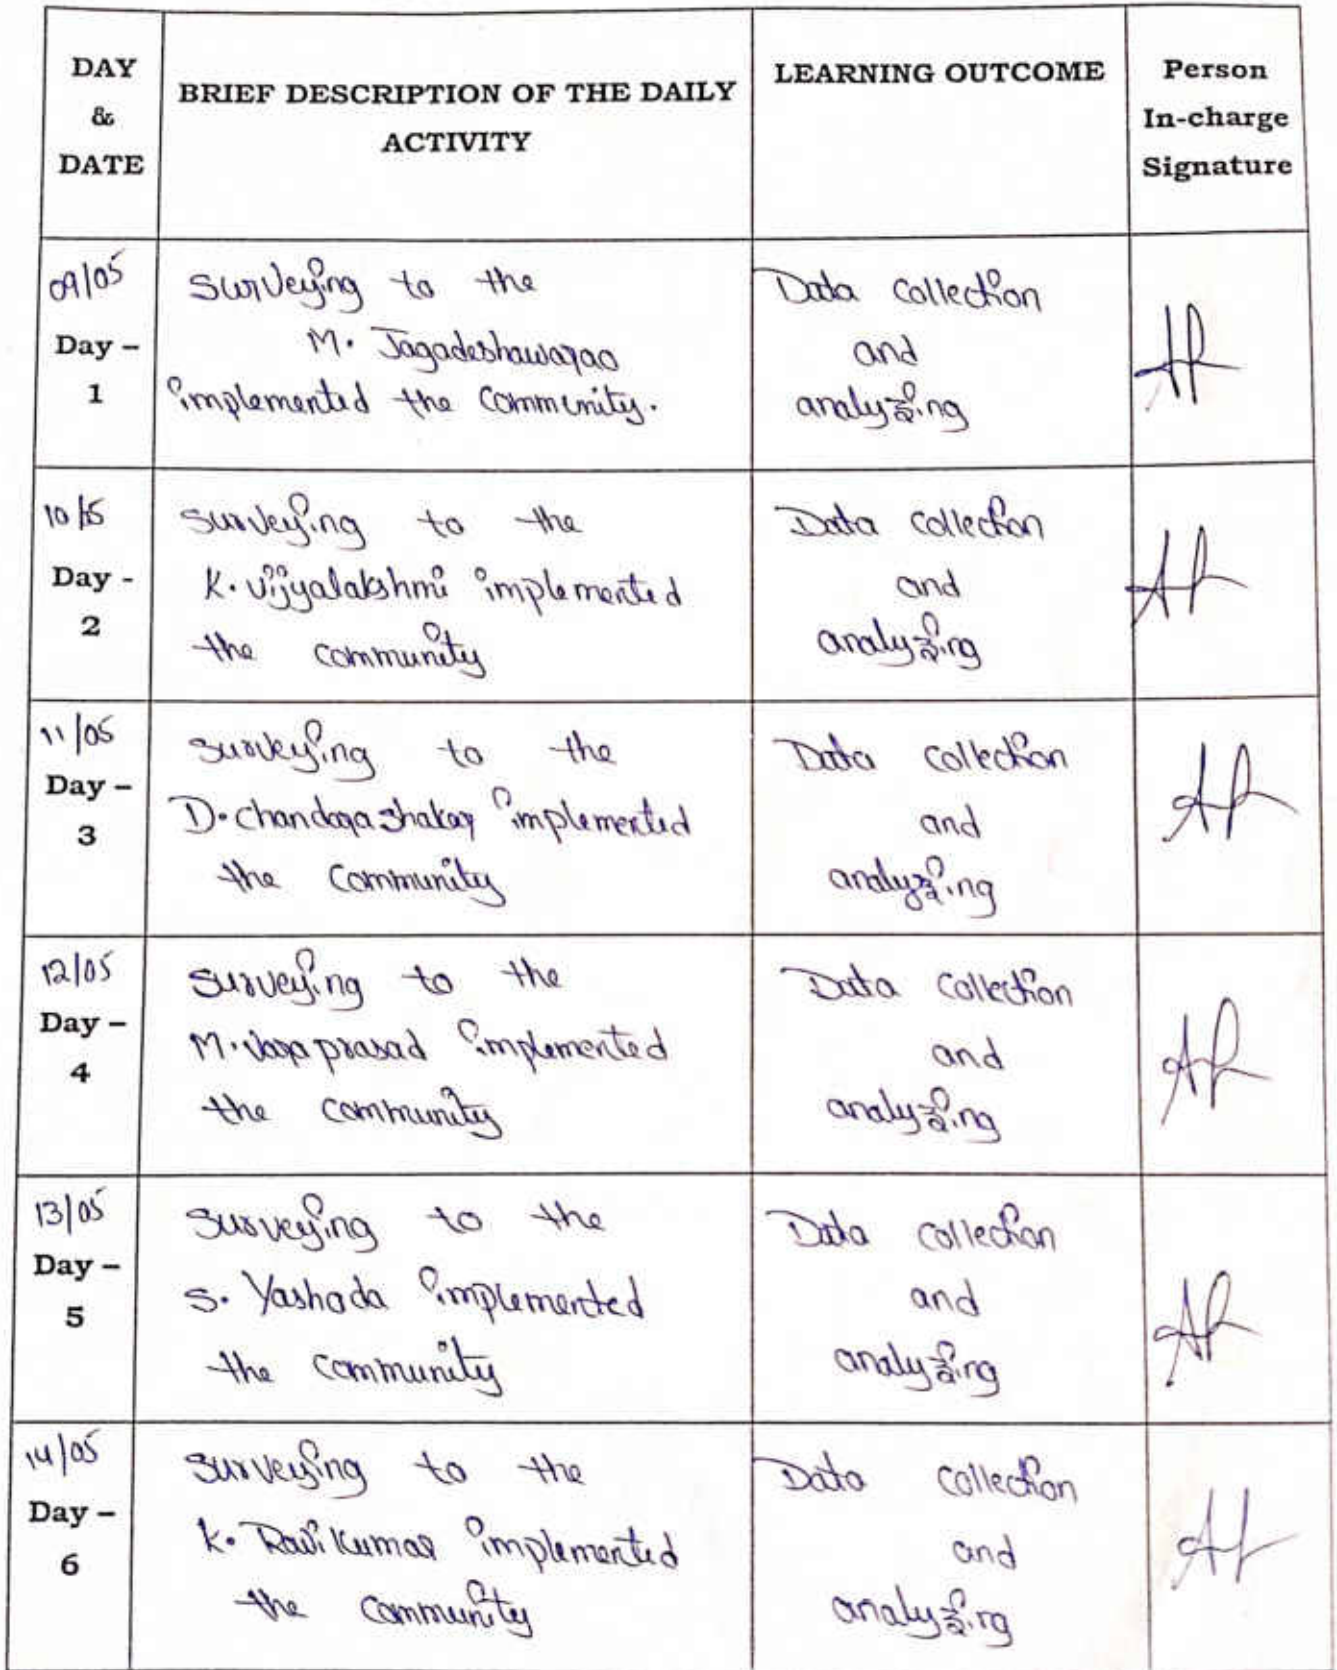 DAY
&
DATE
BRIEF DESCRIPTION OF THE DAILY
ACTIVITY
LEARNING OUTCOME
Person
In-charge
Signature
09/05
Day –
1
Surveying to the
M. Jagadeshawarao
implemented the Community.
Data collection
and
analyzing
10/05
Day -
2
surveying to the
K. Vijiyalakshmi implemented
the community
Data collection
and
analyzing
11/05
Day –
3
surveying to the
D. chandrashakar implemented
the community
Data collection
and
analyzing
12/05
Day –
4
surveying to the
M. prasad implemented
the community
Data collection
and
analyzing
13/05
Day –
5
surveying to the
S. Yashoda implemented
the community
Data collection
and
analyzing
14/05
Day –
6
surveying to the
K. Ravi Kumar implemented
the community
Data collection
and
analyzing